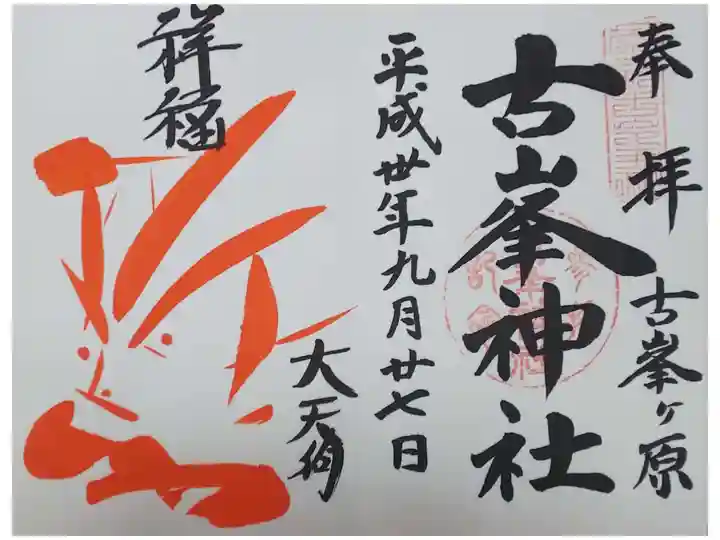 奉拝
古峯ヶ原
古峯神社
平成丗年九月廿七日
祥福
大天狗